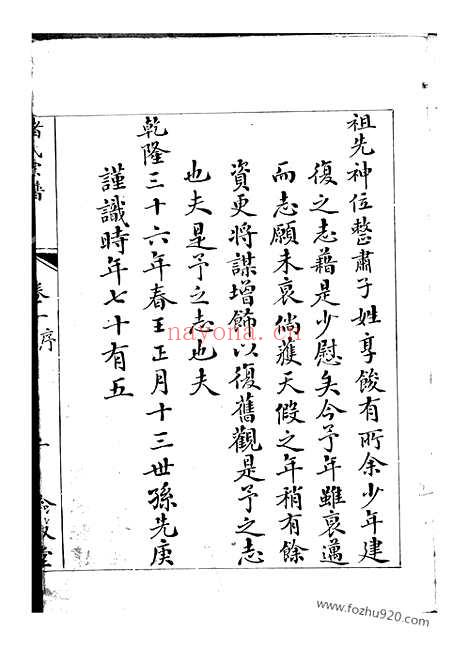 祖先神位整肅子姓享餕有所余少年建
復之志藉是少慰矣今予年雖衰邁
而志願未衰倘獲天假之年稍有餘
資更將謀增飾以復舊觀是予之志
也夫是予之志也夫
乾隆三十六年春王正月十三世孫先庚
謹識時年七十有五
氏宗譜
卷一序
nayona.cn
www.fozhu920.com